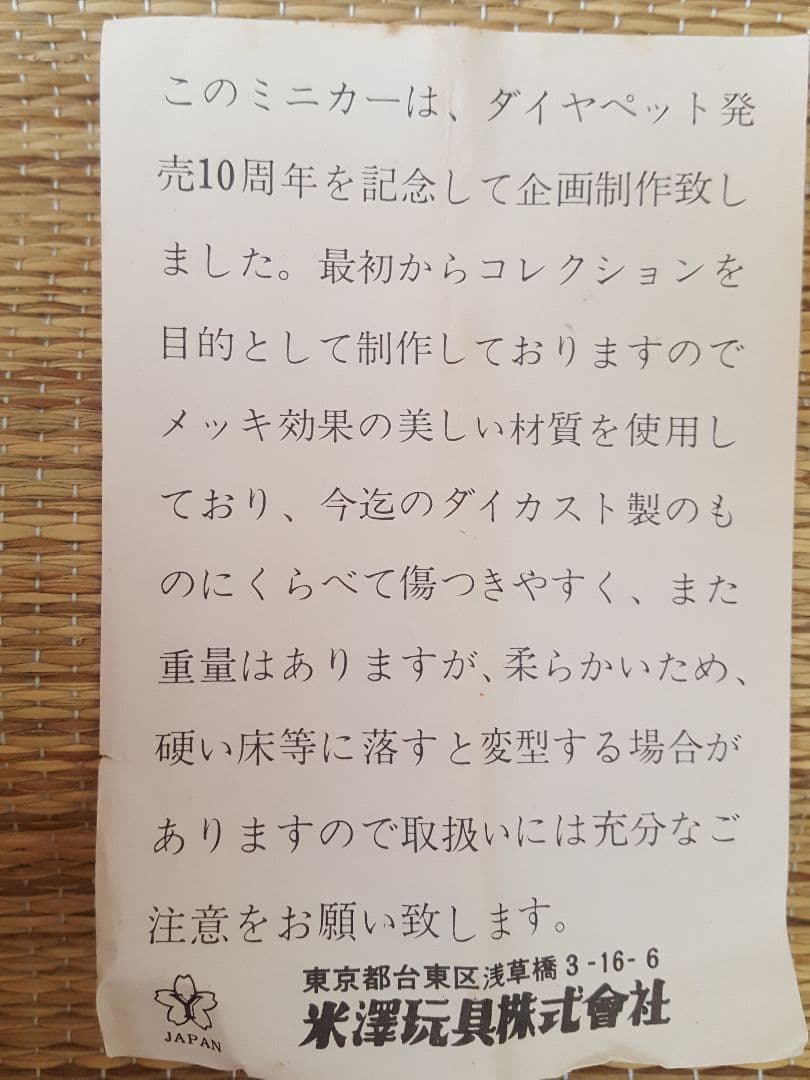 このミニカーは、ダイヤペット発
売10周年を記念して企画制作致し
ました。最初からコレクションを
目的として制作しておりますので
メッキ効果の美しい材質を使用し
ており、今迄のダイカスト製のも
のにくらべて傷つきやすく、また
重量はありますが、柔らかいため、
硬い床等に落すと変型する場合が
ありますので取扱いには充分なご
注意をお願い致します。
東京都台東区浅草橋3-16-6
米澤玩具株式會社
Y
JAPAN